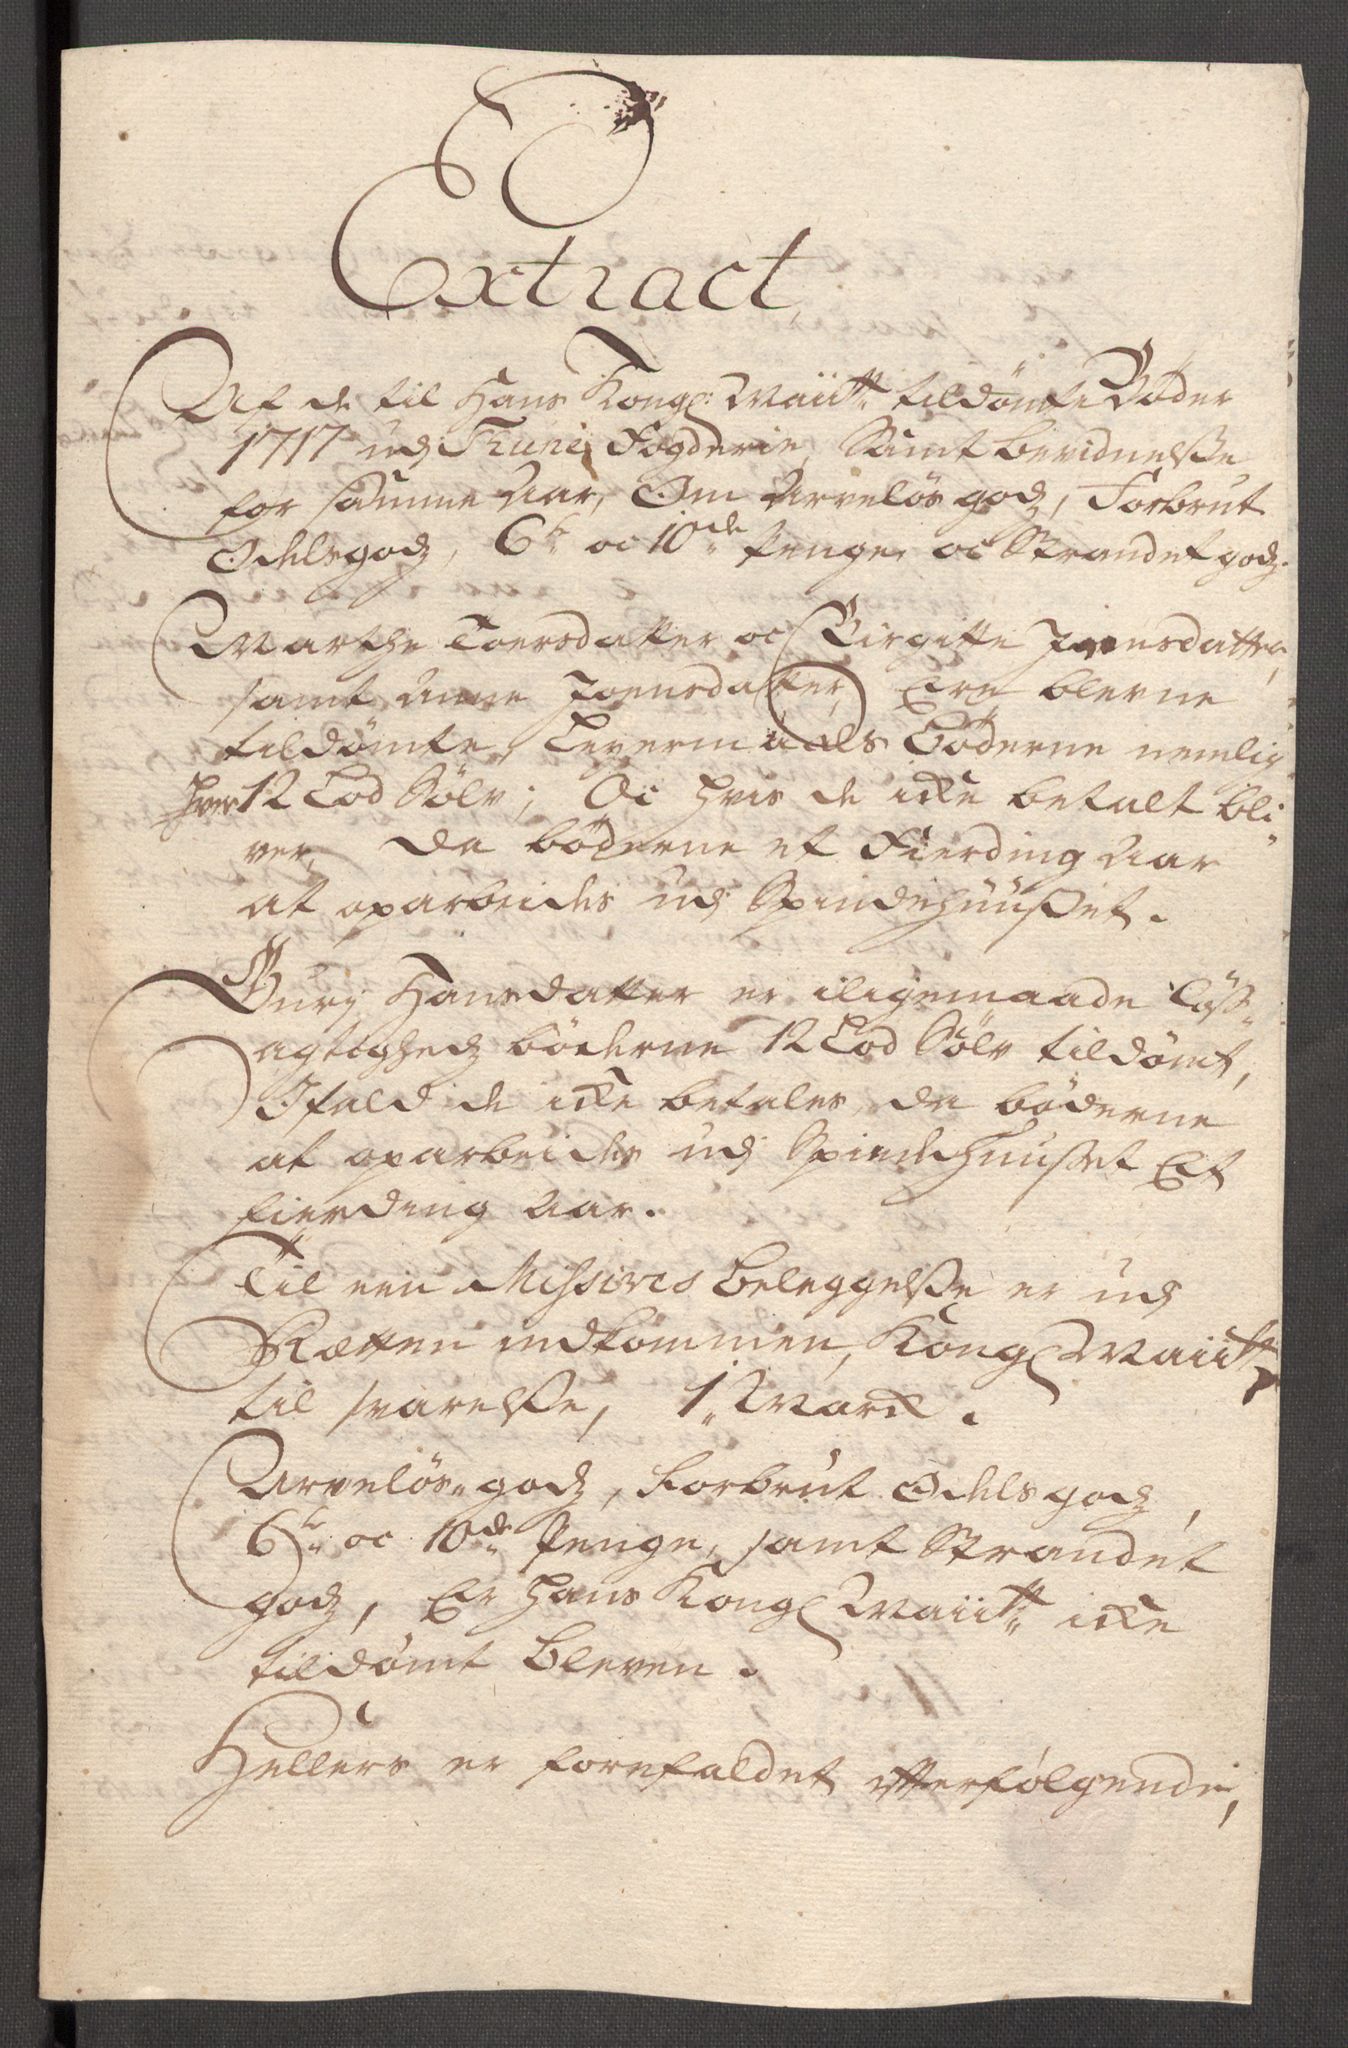 Extract,
Af de til Hans Kongl: Maiitt: tildömte Böder
1717 udj Fogderie, Samt bevidnelsse
for samme Aar, Om Arvelös godz, Forbrut
Odelsgodz, 6te oc 10de Penge, oc Strandet godz.
Marthe Toersdatter oc Birgitte Joensdatter,
samt Anne Joensdatter, Ere blevne
tildömte, Leyermaals Böderne nemlig
hver 12 Lod Sölv; Oc hvis de icke betalt bli„
ver, da böderne et Fierding Aar
at oparbeides udj Spindehuusset.
Gurj Hansdatter er iligemaade Löss„
agtighedz böderne 12 Lod Sölv tildömt,
Ifald de icke betales, da böderne
at oparbeides udj Spindehuusset Et
fierding Aar.
Til een Missives Beleggelsse er udj
Rætten indkommen, Kongl Maiitt
til svarelsse, 1„ Marck.
Arvelös„godz, Forbrut Odelsgodz,
6te oc 10de Penge, samt Strandet
godz, Er Hans Kongl Maiitt: icke
tildömt Bleven.
Hellers er forefaldet efterfölgende,